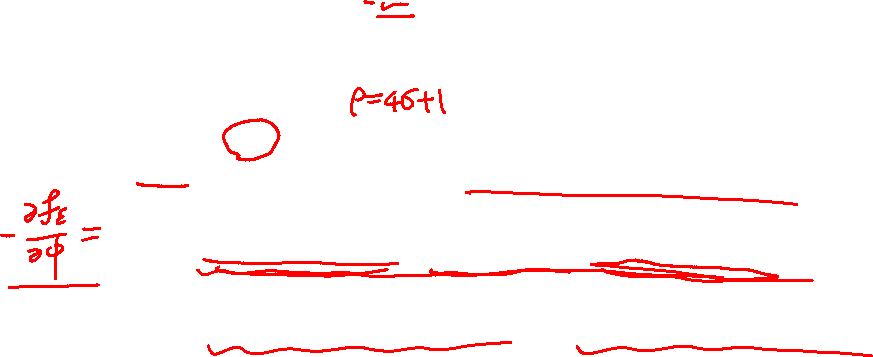 ρ=4σ+1
-∂f_E/∂φ =